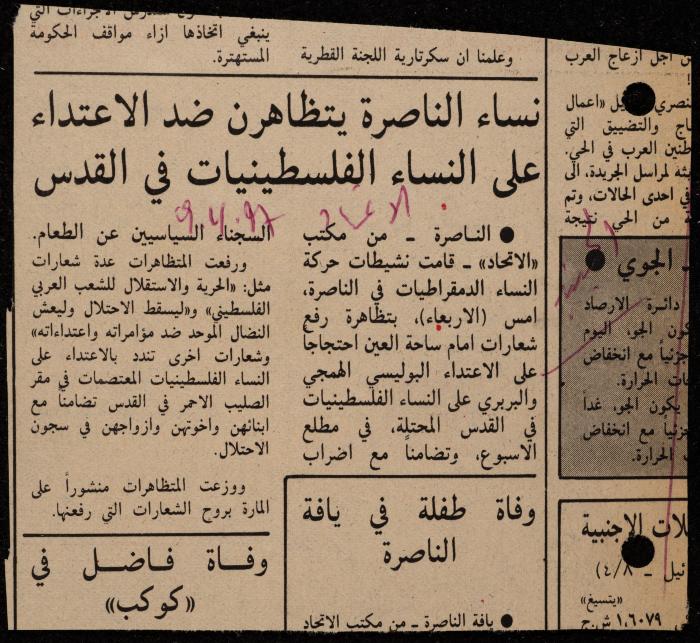 ينبغي اتخاذها ازاء مواقف الحكومة
المستهترة.
وعلمنا ان سكرتارية اللجنة القطرية
نساء الناصرة يتظاهرن ضد الاعتداء
على النساء الفلسطينيات في القدس
● الناصرة ـ من مكتب
«الاتحاد» ـ قامت نشيطات حركة
النساء الدمقراطيات في الناصرة،
امس (الاربعاء)، بتظاهرة رفع
شعارات امام ساحة العين احتجاجاً
على الاعتداء البوليسي الهمجي
والبربري على النساء الفلسطينيات
في القدس المحتلة، في مطلع
الاسبوع، وتضامناً مع اضراب
السجناء السياسيين عن الطعام.
ورفعت المتظاهرات عدة شعارات
مثل: «الحرية والاستقلال للشعب العربي
الفلسطيني» و«ليسقط الاحتلال وليعش
النضال الموحد ضد مؤامراته واعتداءاته»
وشعارات اخرى تندد بالاعتداء على
النساء الفلسطينيات المعتصمات في مقر
الصليب الاحمر في القدس تضامناً مع
ابنائهن واخوتهن وازواجهن في سجون
الاحتلال.
ووزعت المتظاهرات منشوراً على
المارة بروح الشعارات التي رفعنها.
وفاة طفلة في يافة
الناصرة
● يافة الناصرة ـ من مكتب الاتحاد
وفاة فاضل في
«كوكب»
من اجل ازعاج العرب
«اعمال
والتضييق التي
العرب في الحي.
لمراسل الجريدة، الى
في احدى الحالات، وتم
من الحي نتيجة
الجوي
دائرة الارصاد
الجو، اليوم
جزئياً مع انخفاض
الحرارة.
يكون الجو، غداً
جزئياً مع انخفاض
الحرارة.
الاجنبية
ـ ٤/٨)
«يتسيغ»
١,٦٠٧٩ ش.ج